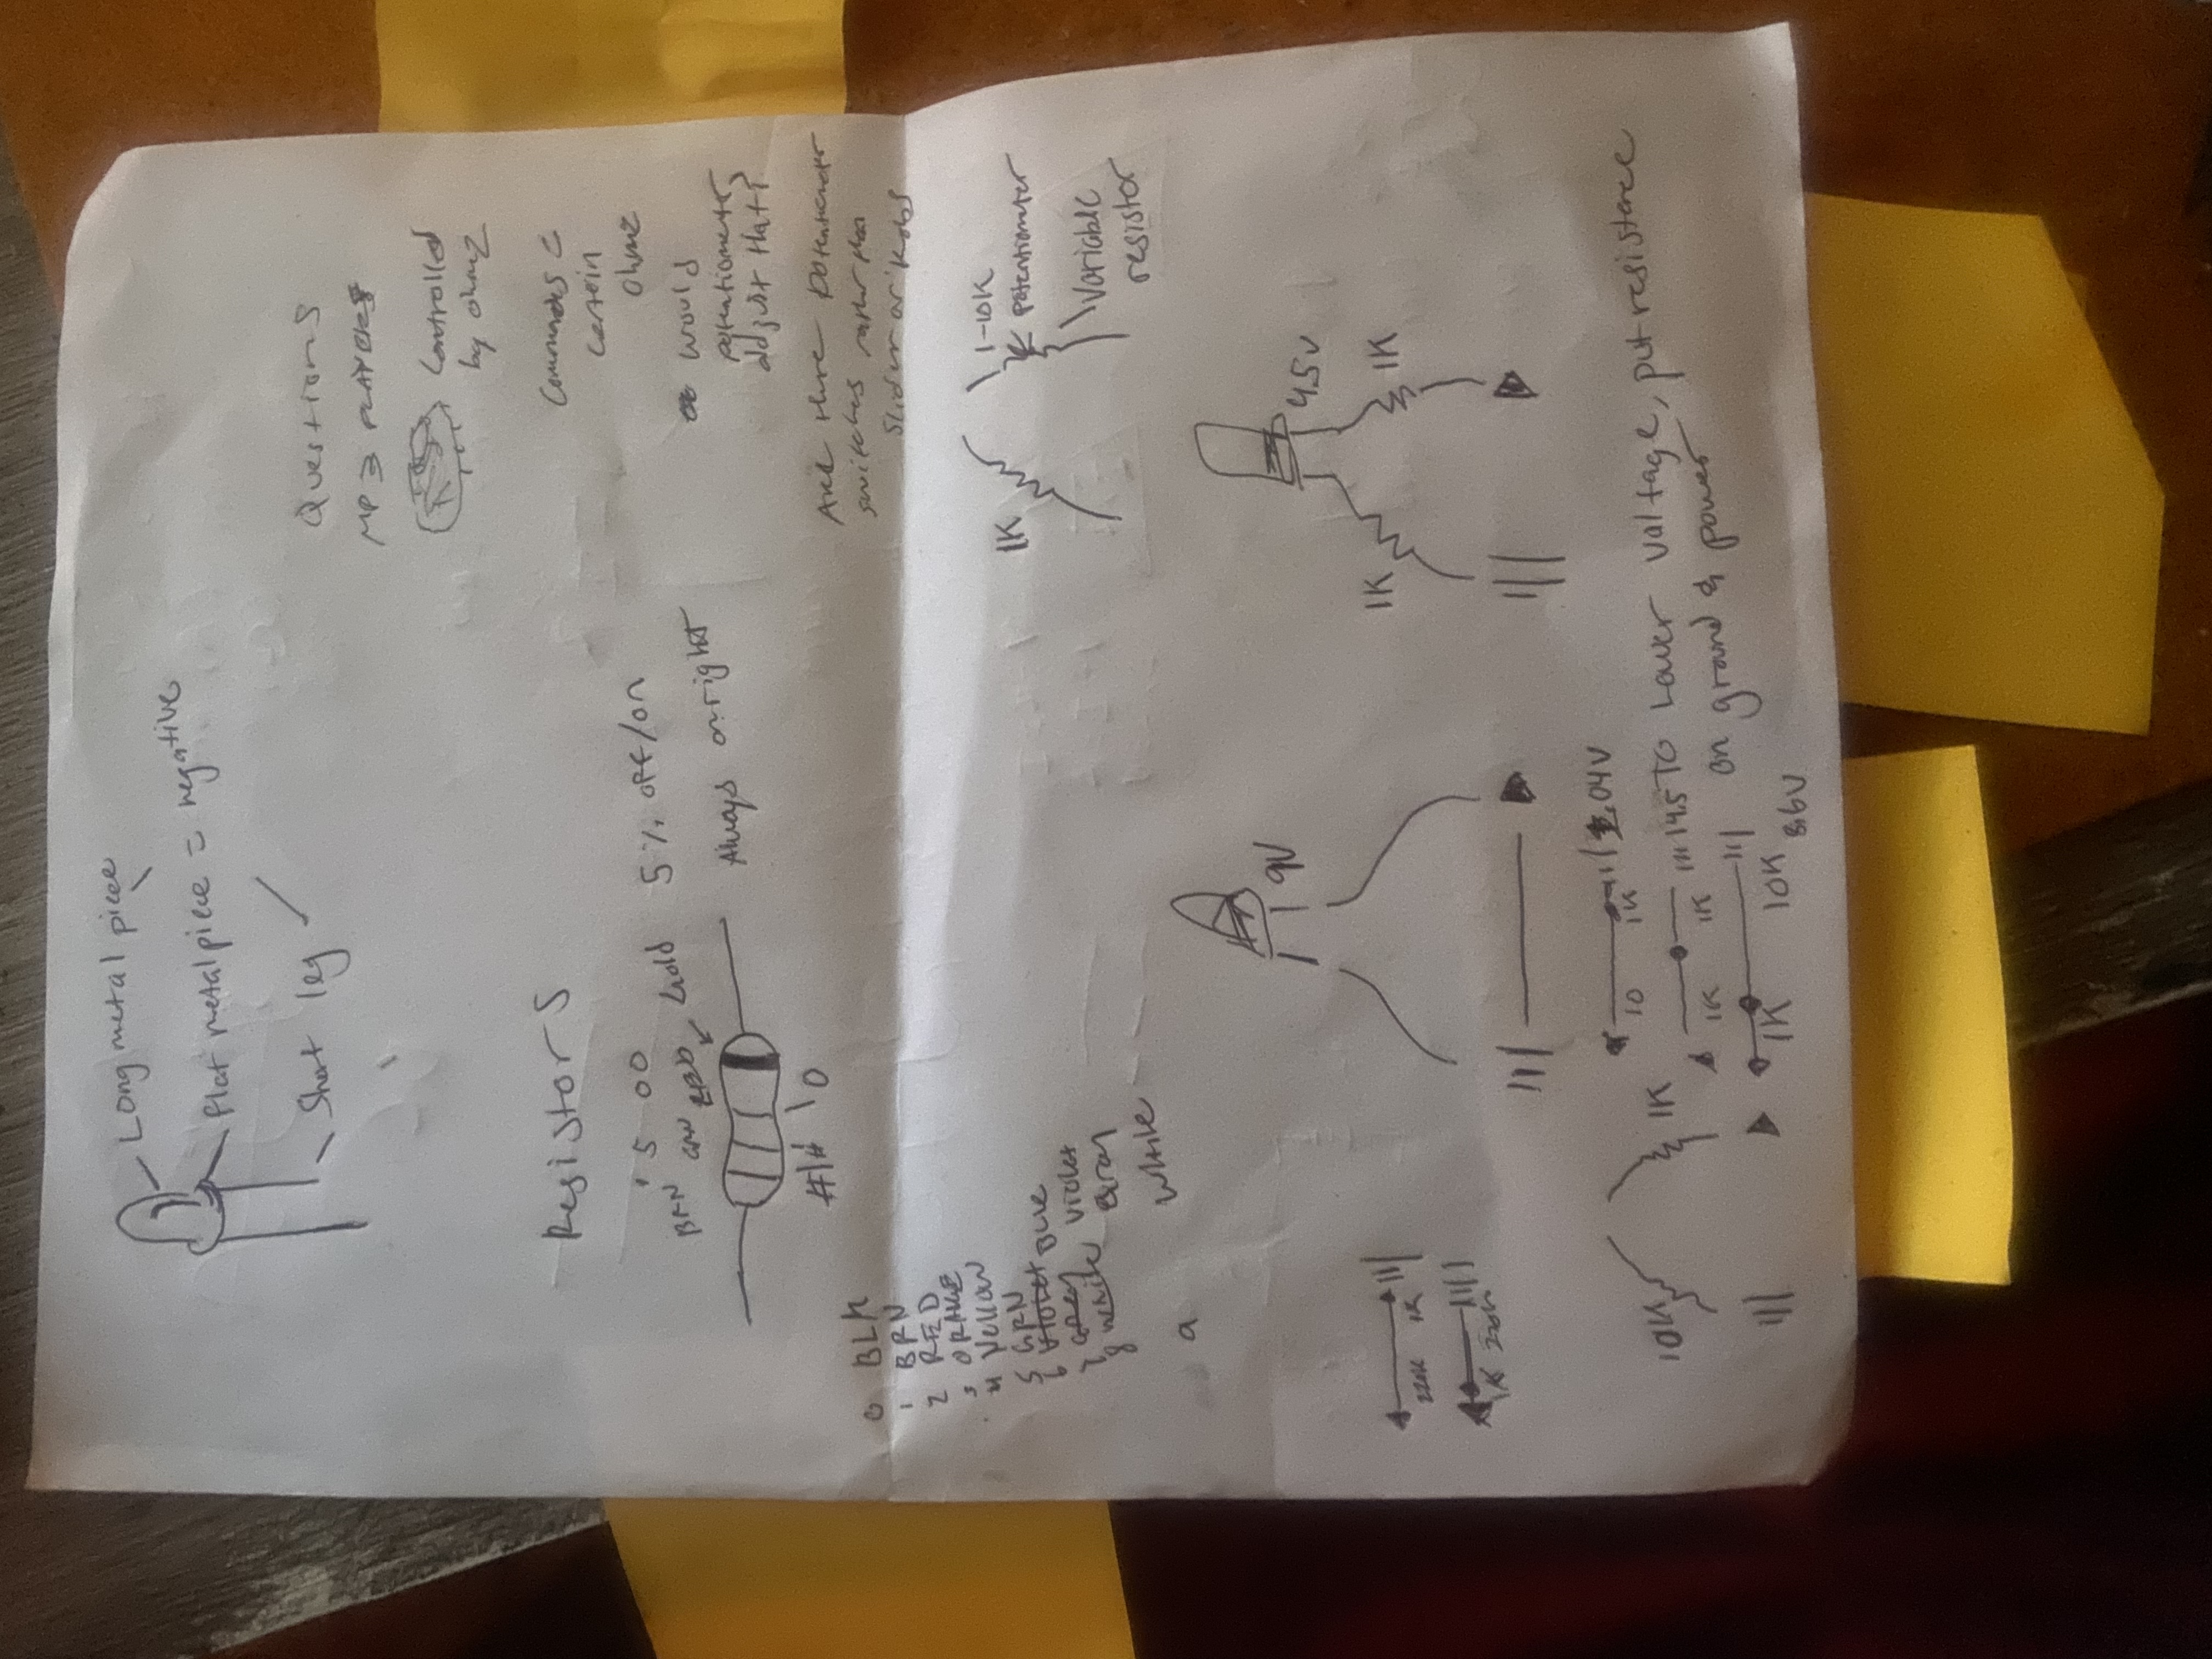 Long metal piece
flat metal piece = negative
Short leg
Questions
MP3 PLAYERS
Controlled
by ohmz
Commands c
certain
ohmz
would
potentiometer
adjust that?
Are there potentiometer
switches rather than
slider or knobs
Resistors
1 5 00
BRN GRN RED Gold 5% off/on
Always on right
#|# \ 0
0 BLK
1 BRN
2 RED
3 ORANGE
4 Yellow
5 GRN
6 Violet BLUE
7 Grey Violet
8 White Gray
9 White
1K
1-10K
Potentiometer
Variable
resistor
9V
4.5V
1K 1K
220K 1K
1K 220K
10K 1K
10 1K .04V
1K 1K 4.5
1K 10K 8.6V
To Lower voltage, put resistence
on ground & power